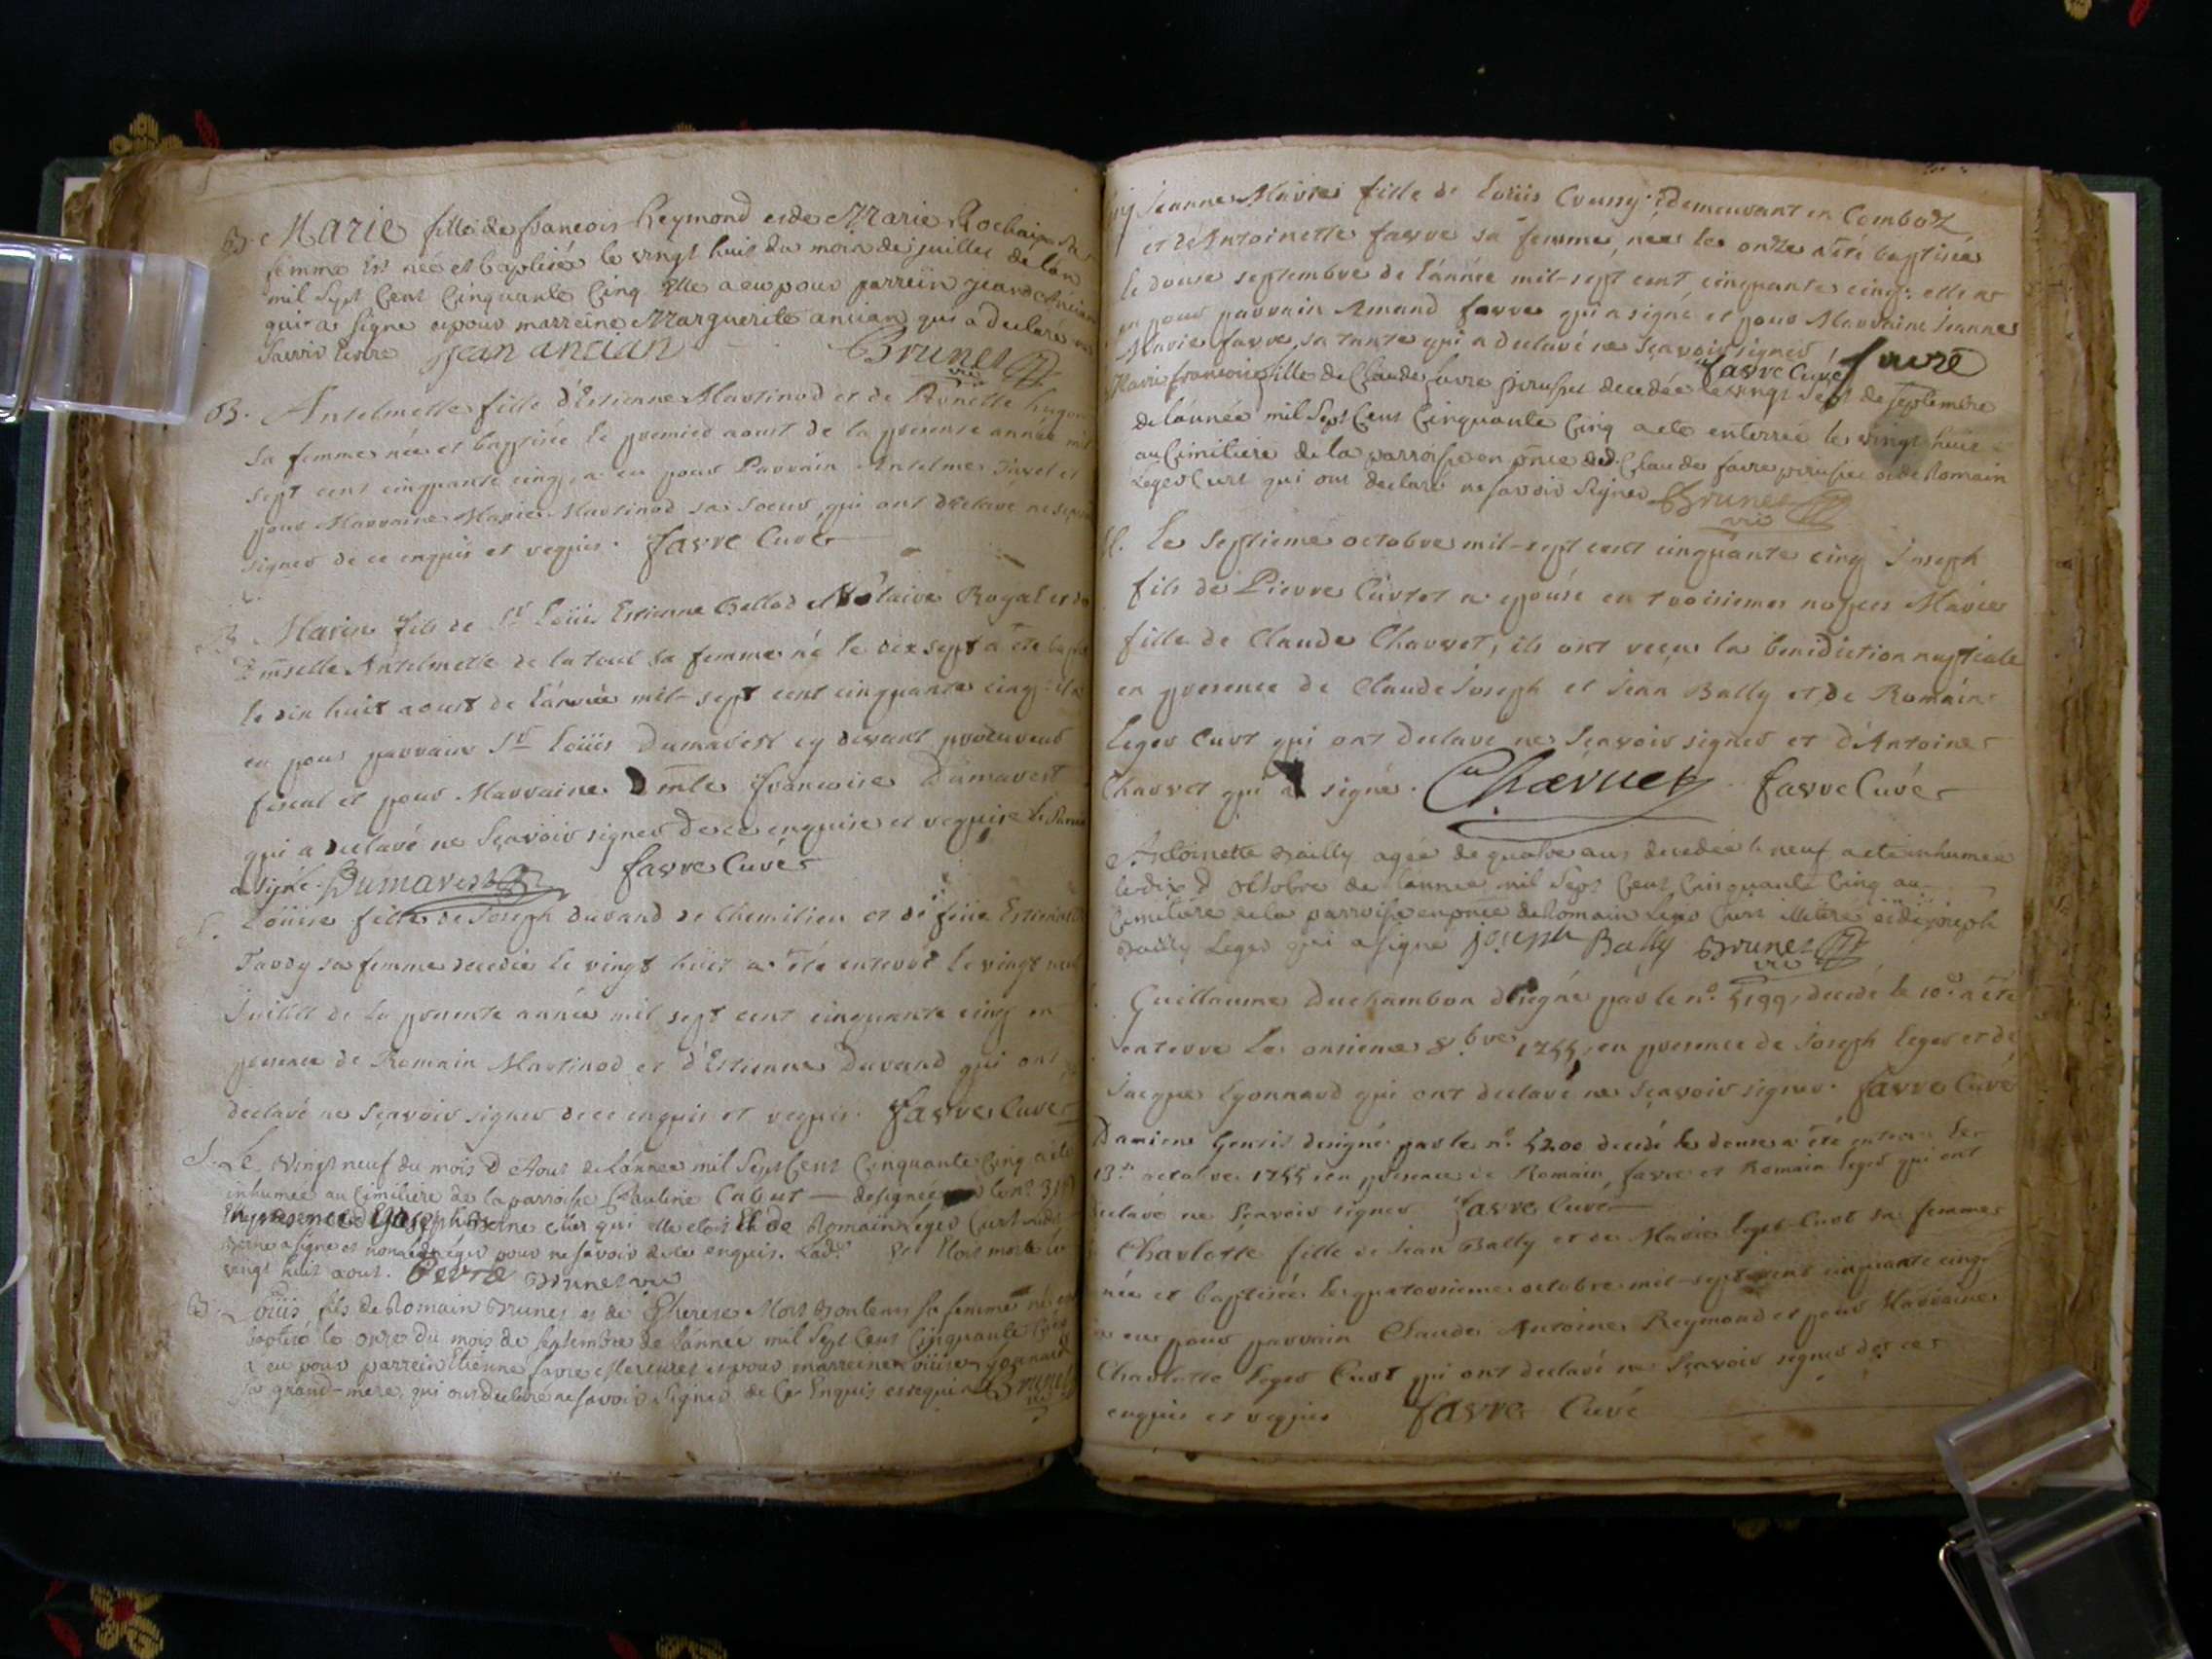 B. Marie fille de francois Reymond et de Marie Rochaix sa
femme est née et baptisée le vingt huit du mois de juillet de l'an
mil Sept Cent Cinquante Cinq elle a eu pour parrein jean Ancian
qui a signe et pour marreine Marguerite ancian qui a declaré ne
savoir Ecrire jean ancian Brunet vic
B. Antelmette fille d'Estienne Martinod et de Pernette
sa femme née et baptisée le premier aoust de la presente année mil
sept cent cinquante cinq, a eu pour Parrain Antelme Juvet et
pour Marraine Marie Martinod sa soeur, qui ont declaré ne sçavoir
signer de ce enquis et requis. favre Curé
B. Marin fils de Sr Loüis Estienne Bellod Notaire Royal et de
Dmselle Antelmette de la tour sa femme né le dix sept a été baptisé
le dix huit aoust de l'année mil-sept cent cinquante cinq il a
eu pour parrain Sr Loüis Dumarest cy devant procureur
fiscal et pour Marraine Dmle francoise Dumarest
qui a declaré ne sçavoir signer de ce enquise et requise le Parrain
a signé. Dumarest favre Curé
S. Loüise fille de Joseph Durand de Chemilieu et de feüe Estiennette
Tardy sa femme decedée le vingt huit a été enterré le vingt neuf
Juillet de la presente année mil sept cent cinquante cinq en
presence de Romain Martinod et d'Estienne Durand qui ont
declaré ne sçavoir signer de ce enquis et requis. favre Curé
S. Le vingt neuf du mois d'Aout de l'année mil Sept Cent Cinquante Cinq a été
inhumée au Cimitiere de la parroisse Pauline Cabut — designée par le no.
En presence de Joseph Berne chez qui elle etoit Et de Romain Leger Curt ledit
Berne a signe et non ledit Leger pour ne savoir de ce enquis. Lad. Et etoit morte le
vingt huit aout. Berne Brunet vic
B. Loüis fils de Romain Brunet et de Therese Mort sa femme né et
baptisé le onze du mois de septembre de l'année mil Sept Cent Cinquante Cinq
a eu pour parrein Etienne favre Mercuret et pour marreine Loüise
sa grand-mere, qui ont declaré ne savoir signer de ce Enquis et requis Brunet vic
Jeanne Marie fille de Loüis Cvussy demeurant en Comboz
et d'Antoinette favre sa femme, née le onze a été baptisée
le douze septembre de l'année mil-sept cent cinquante cinq: elle a
eu pour parrain Amand favre qui a signé et pour Marraine Jeanne
Marie favre, sa tante qui a declaré ne sçavoir signer favre Curé favre
Marie francoise fille de Claude favre decedée le vingt Sept de Septembre
de l'année mil Sept Cent Cinquante Cinq a eté enterrée le vingt huit
au Cimitiere de la parroisse en pnce dud. Claude favre et de Romain
Leger Curt qui ont declaré ne savoir signer Brunet vic
M. Le septieme octobre mil-sept cent cinquante cinq Joseph
fils de Pierre Curtet a epousé en troisiemes nopces Marie
fille de Claude Charvet, ils ont reçeu la benediction nuptiale
en presence de Claude Joseph et Jean Bally et de Romain
Leger Curt qui ont declaré ne sçavoir signer et d'Antoine
Charvet qui a signé. Charvet favre Curé
Antoinette Bailly agée de quatre ans decedée le neuf a eté inhumée
le dix d'octobre de l'année mil Sept Cent Cinquante Cinq au
Cimitiere de la parroisse en pnce de Romain Leger Curt illiteré et de joseph
Bailly Leger qui a signe joseph Bally Brunet vic
Guillaume Duchambon designé par le no. 5199, decedé le 10e. a été
enterré Le onsieme 8.bre 1755, en presence de Joseph Leger et de
Jacque Lyonnard qui ont declaré ne sçavoir signer. favre Curé
Damien Gentil designé par le no. 5200 decedé le douze a été enterré le
13.e octobre 1755 en presence de Romain favre et Romain Leger qui ont
declaré ne sçavoir signer favre Curé
Charlotte fille de Jean Bally et de Marie Leger-Curt sa femme
née et baptisée le quatorsieme octobre mil-sept cent cinquante cinq
a eu pour parrain Claude Antoine Reymond et pour Marraine
Charlotte Leger Curt qui ont declaré ne sçavoir signer de ce
enquis et requis favre Curé